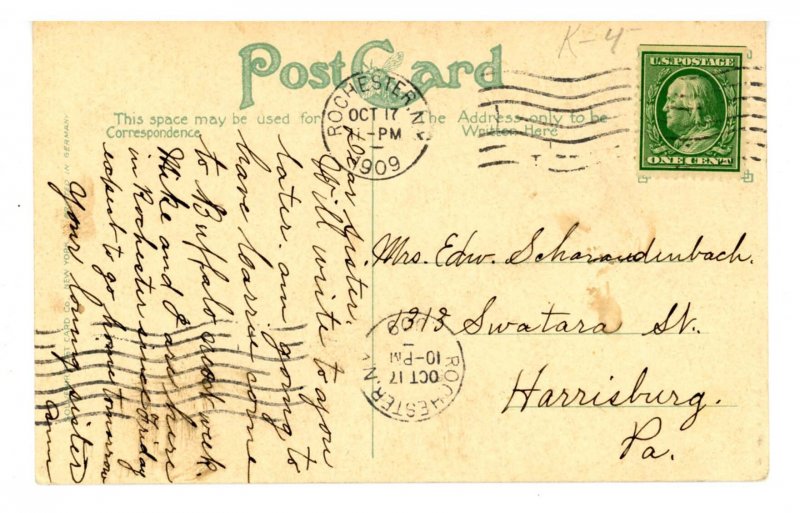 K-4
Post Card
This space may be used for
Correspondence
The Address only to be
Written Here
ROCHESTER N.Y.
OCT 17
-PM
1909
U.S. POSTAGE
ONE CENT
Dear Sister:
Will write to you
later. am going to
have Carrie come
to Buffalo next week.
Mike and I are here
in Rochester since Friday
expect to go home tomorrow
Your loving sister
Ann
Mrs. Edw. Scharaudenbach.
1313 Swatara St.
Harrisburg.
Pa.
ROCHESTER N.Y.
OCT 17
10-PM
1909
POST CARD CO., NEW YORK
IN GERMANY